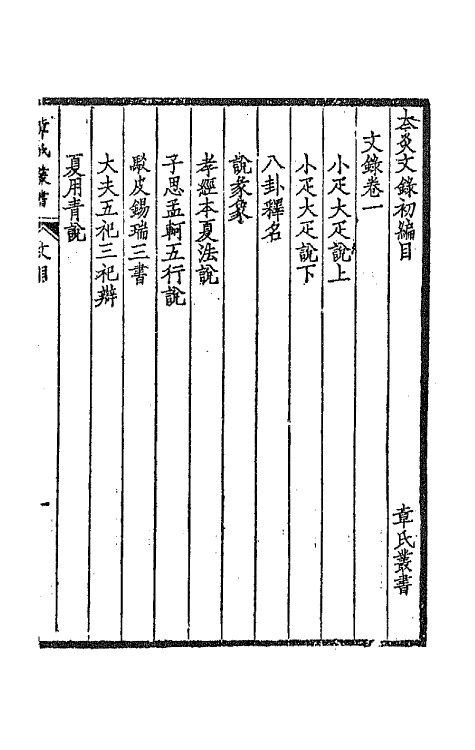 太炎文錄初編目
章氏叢書
文錄卷一
小疋大疋說上
小疋大疋說下
八卦釋名
說彖象
孝經本夏法說
子思孟軻五行說
駮皮錫瑞三書
大夫五祀三祀辯
夏用青說
章氏叢書
文目
一